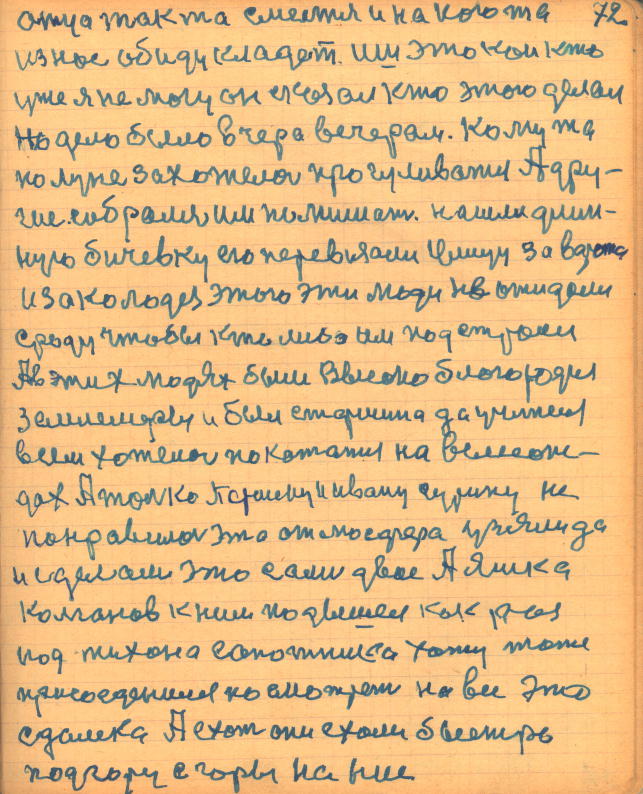 отуа так та смеется и на кого та 72
из нос обиду кладет. или это кои кто
уже я не могу он сказал кто этого делал
Но дело было вчера вечерам. Кому та
по луне захотелос прогуливатся А дру-
гие собралис им помишат. нашли длин-
ную бичевку его перевязали улицу за ворота
и за колодез этого эти люди не ожидали
сразу чтобы кто либо им подстроил
Ав этих людях были Высоко благородия
землемеры и был старшина да учител
всем хотелос покататся на велеси-
дах А толко Паршину и ивану сурину не
понравилос эта отмосфера взяли да
и сделали это сами двое А яшка
Колганов к ним подвышел как раз
под тихона сапожника хату тоже
присоеденился посмотрет на все это
сдалека А ехат они ехали быстро
подгору с горы на ние